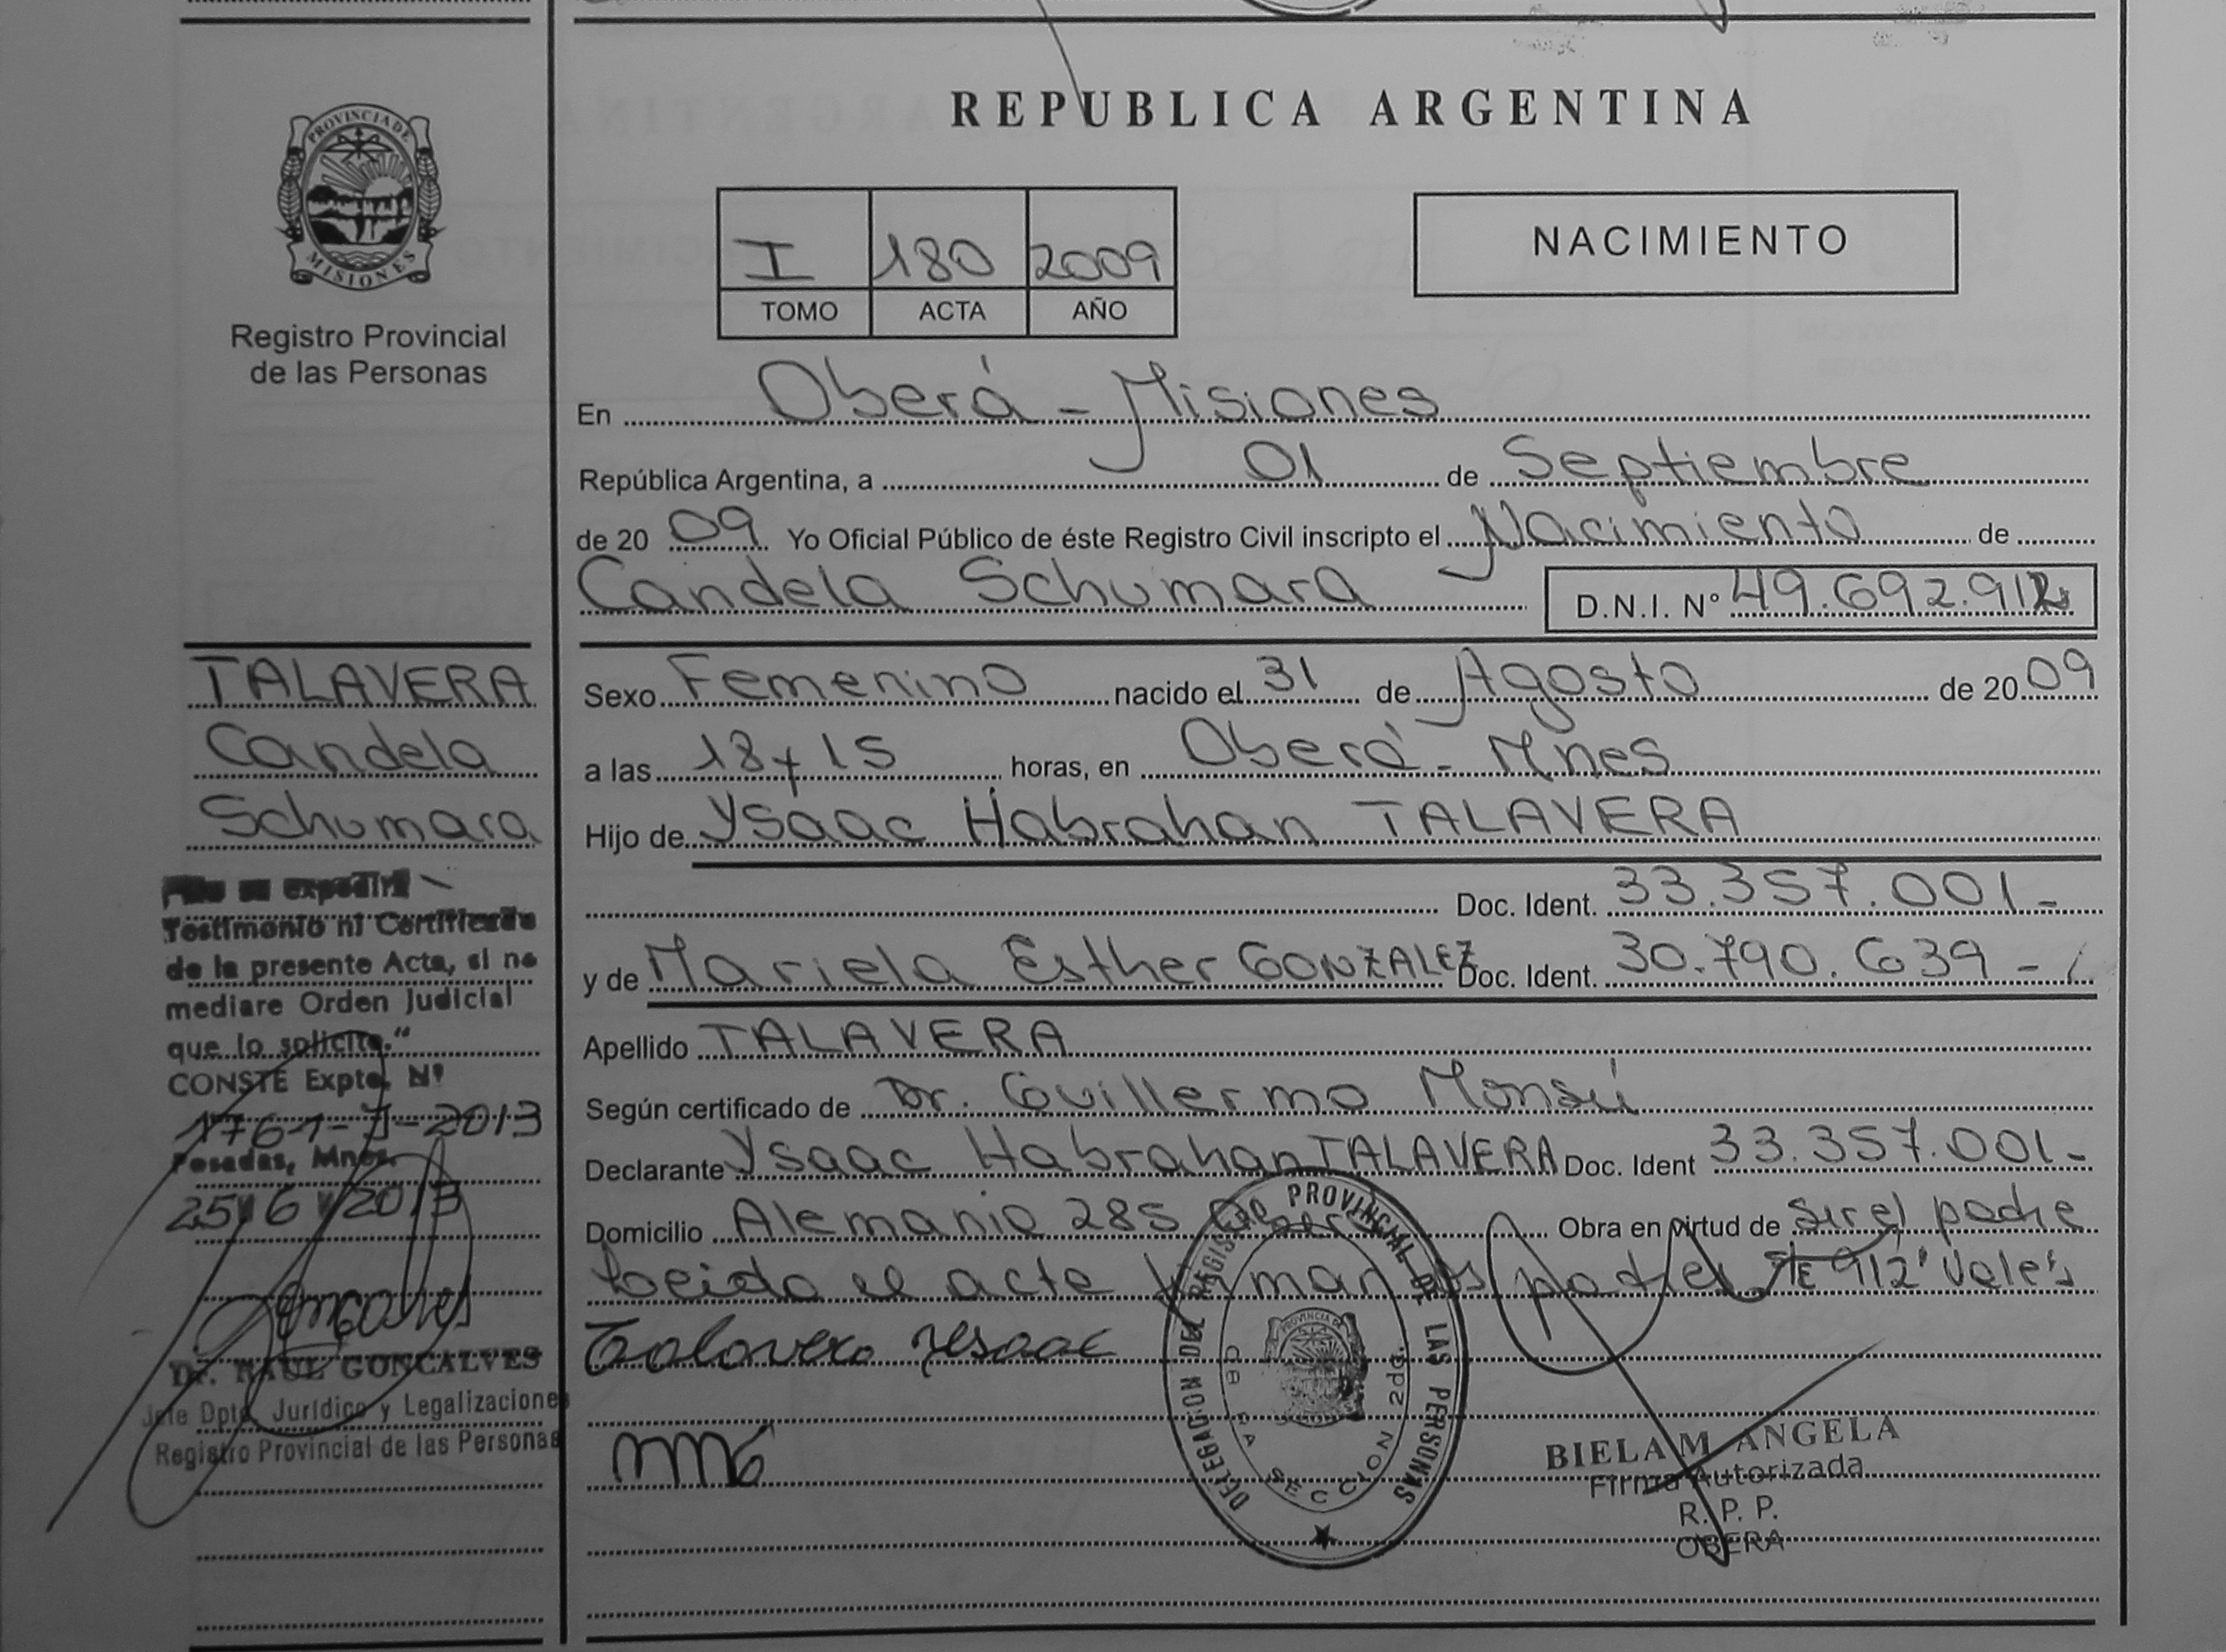 REPUBLICA ARGENTINA
PROVINCIA DE
MISIONES
Registro Provincial
de las Personas
I 180 2009
TOMO ACTA AÑO
NACIMIENTO
En Oberá - Misiones
República Argentina, a 01 de Septiembre
de 20 09 Yo Oficial Público de éste Registro Civil inscripto el Nacimiento de
Candela Schumara D.N.I. Nº 49.692.912
TALAVERA
Candela
Schumara
se expedirá
Testimonio ni Certificado
de la presente Acta, si no
mediare Orden Judicial
que lo solicite."
CONSTE Expte. Nº
1761-J-2013
Posadas, Mnes.
25 6 2013
Goncalves
Dr. RAUL GONCALVES
Jefe Dpto. Jurídico y Legalizaciones
Registro Provincial de las Personas
Sexo Femenino nacido el 31 de Agosto de 20 09
a las 18 y 15 horas, en Oberá - Mnes
Hijo de Ysaac Habrahan TALAVERA
Doc. Ident. 33.357.001-
y de Mariela Esther GONZALEZ Doc. Ident. 30.790.639 -
Apellido TALAVERA
Según certificado de Dr. Guillermo Monsú
Declarante Ysaac Habrahan TALAVERA Doc. Ident 33.357.001-
Domicilio Alemania 285 Oberá Obra en virtud de Ser el padre
Leido el acta firman los padres 912 Vale
Talavera Ysaac
MMG
DELEGACION DEL REGISTRO PROVINCIAL DE LAS PERSONAS
PROVINCIA DE
SECCION 2da.
BIELA M. ANGELA
Firma Autorizada
R. P. P.
OBERA